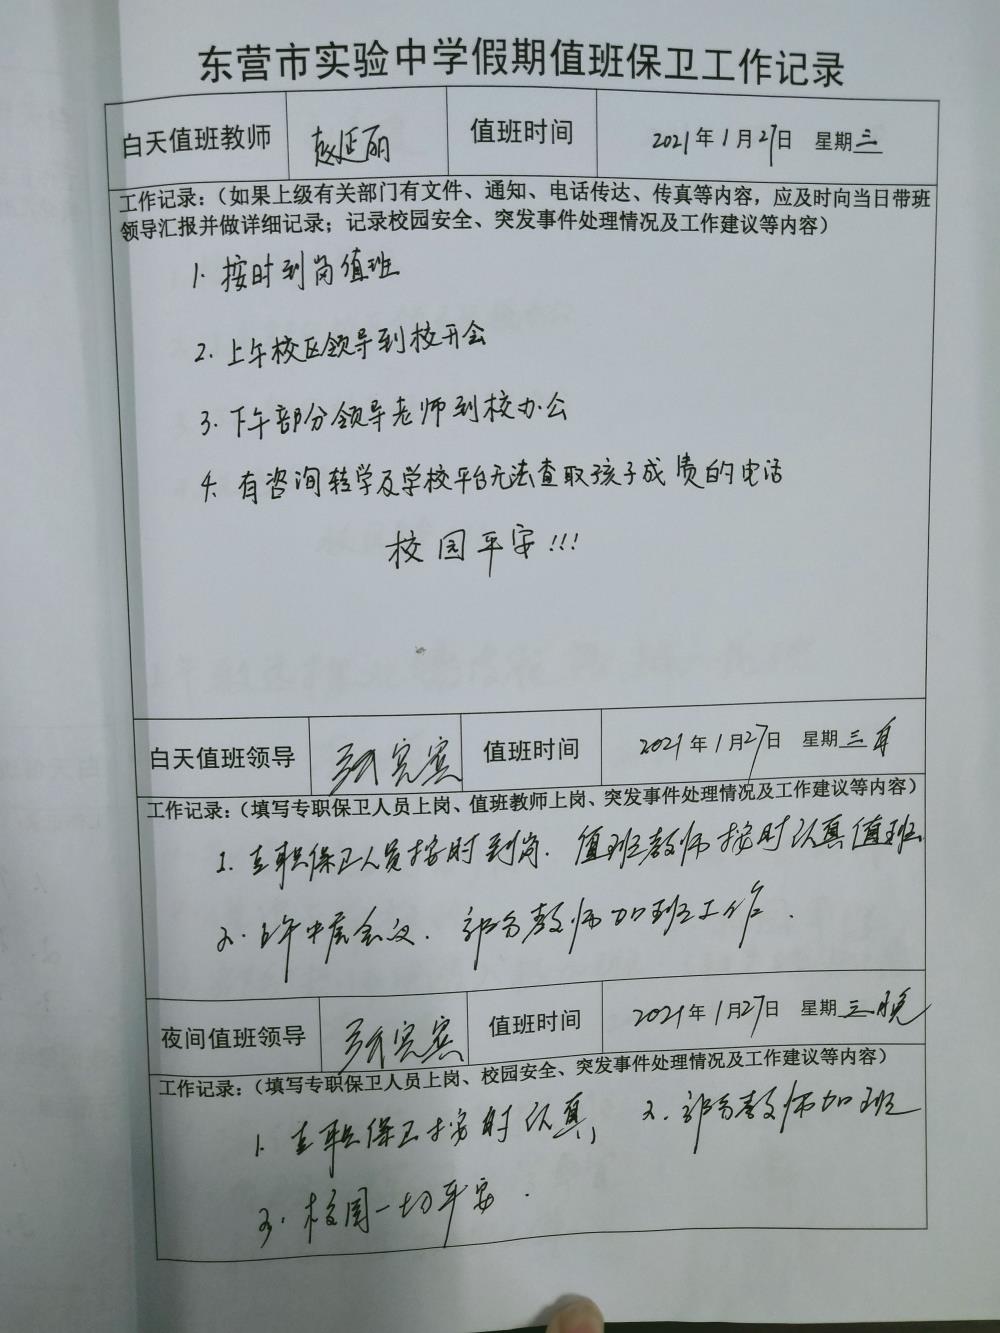 东营市实验中学假期值班保卫工作记录
白天值班教师 赵延丽 值班时间 2021年1月27日 星期三
工作记录：（如果上级有关部门有文件、通知、电话传达、传真等内容，应及时向当日带班
领导汇报并做详细记录；记录校园安全、突发事件处理情况及工作建议等内容）
1. 按时到岗值班
2. 上午校区领导到校开会
3. 下午部分领导老师到校办公
4. 有咨询转学及学校平台无法查取孩子成绩的电话
校园平安!!!
白天值班领导 值班时间 2021年1月27日 星期三
工作记录：（填写专职保卫人员上岗、值班教师上岗、突发事件处理情况及工作建议等内容）
1. 专职保卫人员按时到岗. 值班教师按时认真值班.
2. 上午中层会议. 部分教师加班工作.
夜间值班领导 值班时间 2021年1月27日 星期三晚
工作记录：（填写专职保卫人员上岗、校园安全、突发事件处理情况及工作建议等内容）
1. 专职保卫按时认真, 2. 部分教师加班
3. 校园一切平安.